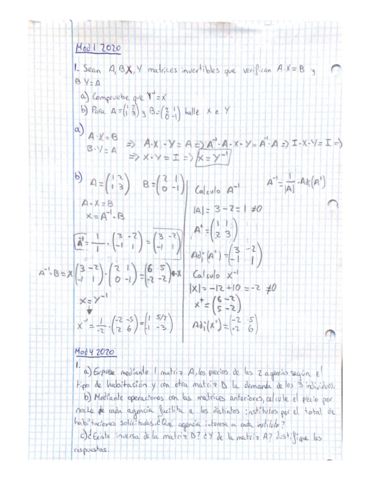 Mod 1 2020
1. Sean A, B, X, Y matrices invertibles que verifican A·X=B y
B·Y=A
a) Compruebe que Y⁻¹=X
b) Para A=(1 2; 1 3) y B=(2 1; 0 -1) halle X e Y
a)
A·X=B
B·Y=A ⇒ A·X·Y=A ⇒ A⁻¹·A·X·Y=A⁻¹·A ⇒ I·X·Y=I ⇒
⇒ X·Y=I ⇒ X=Y⁻¹
b) A=(1 2; 1 3) B=(2 1; 0 -1)
A·X=B
X=A⁻¹·B
A⁻¹=1/1·(3 -2; -1 1)=(3 -2; -1 1)
A⁻¹·B=X (3 -2; -1 1)·(2 1; 0 -1)=(6 5; -2 -2)=X
X=Y⁻¹
X⁻¹=1/-2·(-2 -5; 2 6)=(1 5/2; -1 -3)
Calculo A⁻¹ A⁻¹=1/|A|·Adj(Aᵗ)
|A|=3-2=1≠0
Aᵗ=(1 1; 2 3)
Adj(Aᵗ)=(3 -2; -1 1)
Calculo X⁻¹
|X|=-12+10=-2≠0
Xᵗ=(6 -2; 5 -2)
Adj(Xᵗ)=(-2 -5; 2 6)
Mod 4 2020
1.
a) Exprese mediante 1 matriz A, los precios de las 2 agencias según el
tipo de habitación y con otra matriz D la demanda de los 3 institutos.
b) Mediante operaciones con las matrices anteriores, calcule el precio por
noche de cada agencia facilita a los distintos institutos por el total de
habitaciones solicitadas. ¿Que agencia interesa a cada instituto?
c) ¿Existe inversa de la matriz D? ¿Y de la matriz A? Justifique las
respuestas.